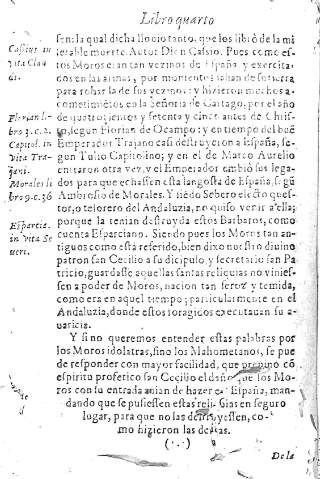 Libro quarto
sen: la qual dicha lloviotanto, que los librò de la mi
serable muerte. Autor Dion Cassio. Pues como es-
tos Moros eran tan vezinos de España y exercita-
dos en las armas, por momentos salian de su tierra
para robar la de sus vezinos: y hizieron muchos a-
cometimiẽtos en la Señoria de Cartago, por el año
de quatrocientos y setenta y cinco antes de Chris-
to, segun Florian de Ocampo: y en tiempo del buẽ
Emperador Trajano casi destruyeron a España, se-
gun Tulio Capitolino; y en el de Marco Aurelio
entraron otra vez, y el Emperador embiò sus lega-
dos para que echassen esta langosta de España, segũ
Ambrosio de Morales. Y siẽdo Severo electo ques-
tor, o telorero del Andaluzia, no quiso venir a ella;
porque la tenian destruyda estos Barbaros, como
cuenta Esparciano. Siendo pues los Moros tan an-
tiguos como està referido, bien dixo nuestro divino
patron san Cecilio a su dicipulo, y secretario san Pa-
tricio, guardasse aquellas santas reliquias no vinies-
sen a poder de Moros, nacion tan feroz y temida,
como era en aquel tiempo; particularmente en el
Andaluzia, donde estos foragidos executauan su a-
uaricia.
Y si no queremos entender estas palabras por
los Moros idolatras, sino los Mahometanos, se pue
de responder con mayor facilidad, que previno cõ
espiritu profetico san Cecilio el daño que los Mo-
ros con su entrada auian de hazer en España, man-
dando que se pusiessen estas reliquias en seguro
lugar, para que no las destruyessen, co-
mo hizieron las demas.
(·.·)
De la
Cassius in
vita Clau
di.
Florian li-
bro 3. c. 2.
Capitol. in
vita Tra-
jani.
Morales li
bro 9. c. 36
Espartia.
in vita Se
ueri.